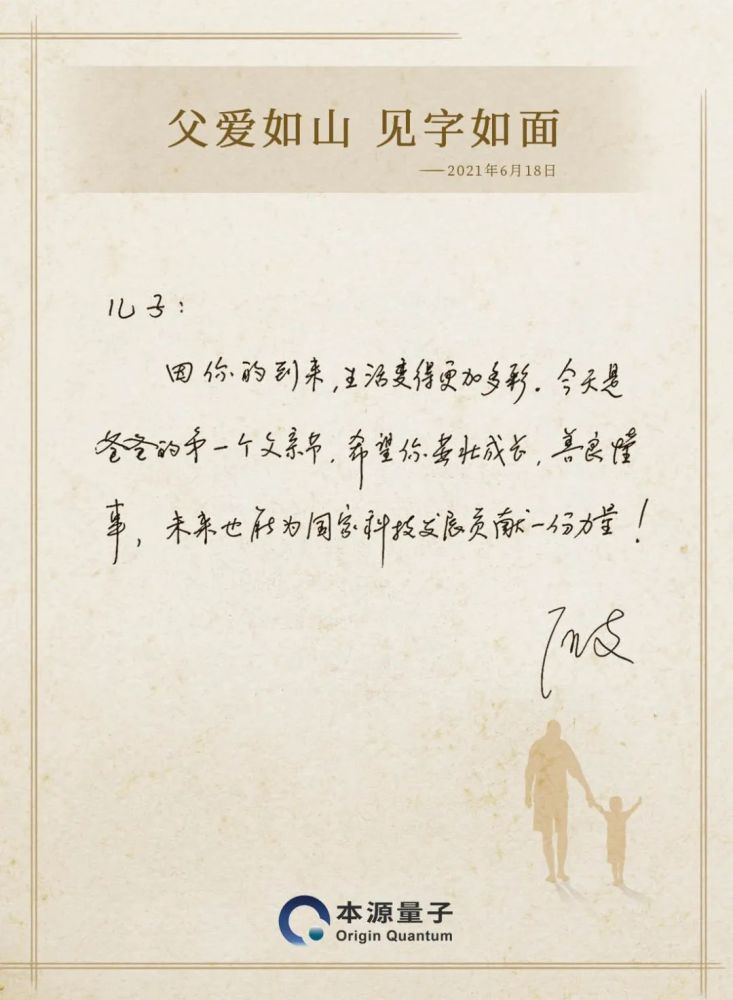 父爱如山 见字如面
——2021年6月18日
儿子：
因你的到来，生活变得更加多彩。今天是
爸爸的第一个父亲节，希望你茁壮成长，善良懂
事，未来也能为国家科技发展贡献一份力量！
本源量子
Origin Quantum